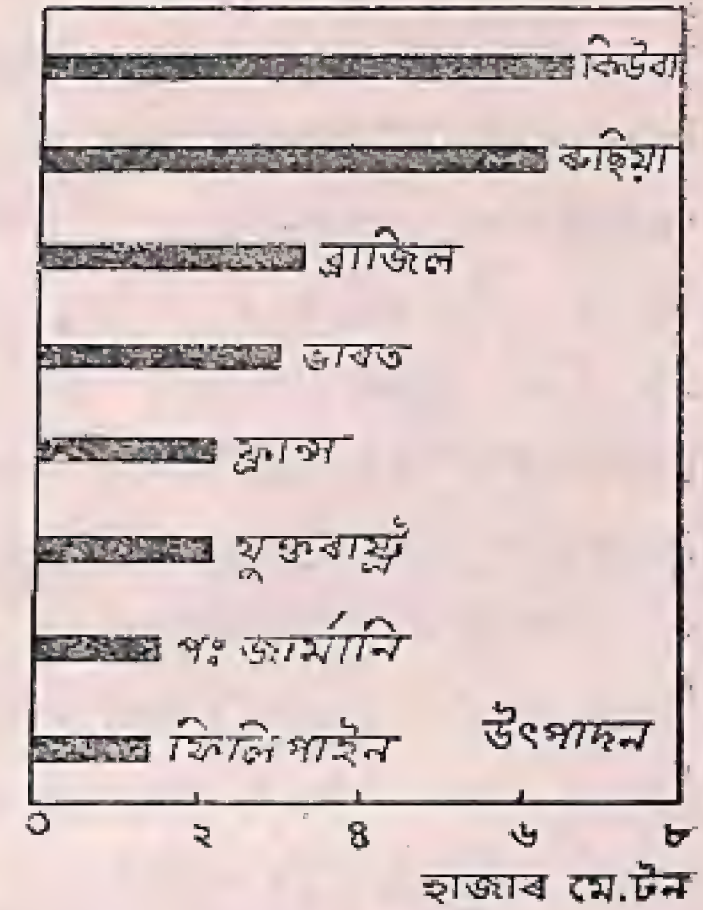 কিউবা
ৰুছিয়া
ব্রাজিল
ভাৰত
ফ্রান্স
যুক্তৰাষ্ট্ৰ
পঃ জার্মানি
ফিলিপাইন
উৎপাদন
০ ২ ৪ ৬ ৮
হাজাৰ মে.টন